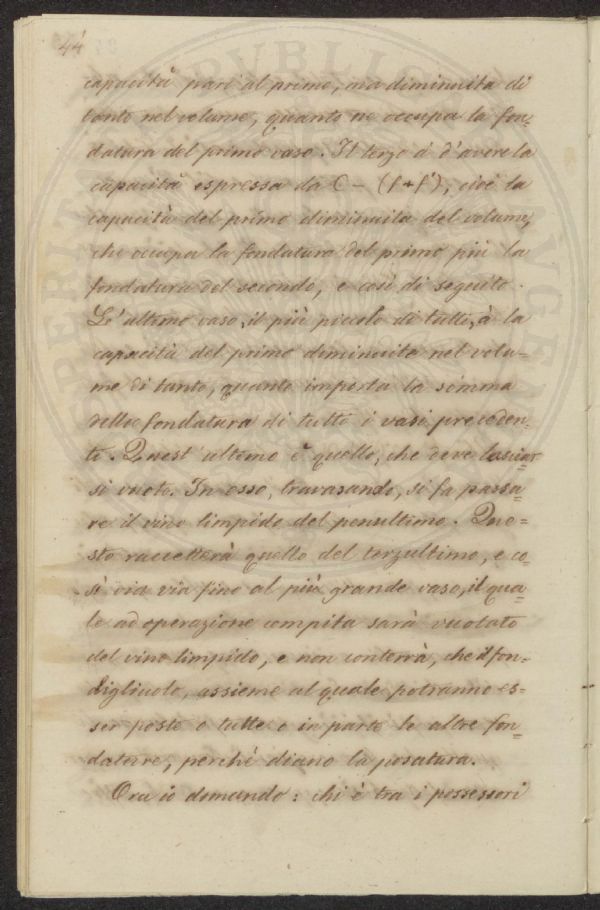 44
capacità pari al primo, ma diminuita di
tanto nel volume, quanto ne occupa la fon=
datura del primo vaso. Il terzo à d'avere la
capacità espressa da C - (f+f'), cioè la
capacità del primo diminuita del volume,
che occupa la fondatura del primo più la
fondatura del secondo, e così di seguito.
L'ultimo vaso, il più piccolo di tutti, à la
capacità del primo diminuita nel volu-
me di tanto, quanto importa la somma
delle fondatura di tutti i vasi preceden=
ti. Quest'ultimo è quello, che deve lasciar
si vuoto. In esso, travasando, si fa passa=
re il vino limpido del penultimo. Que=
sto raccetterà quello del terzultimo, e co=
sì via via fino al più grande vaso, il qua=
le ad operazione compita sarà vuotato
del vino limpido, e non conterrà, che il fon=
digliuolo, assieme al quale potranno es=
ser poste o tutte o in parte le altre fon=
dature, perchè diano la posatura.
Ora io domando: chi è tra i possessori
PERITA
RPVBLIC